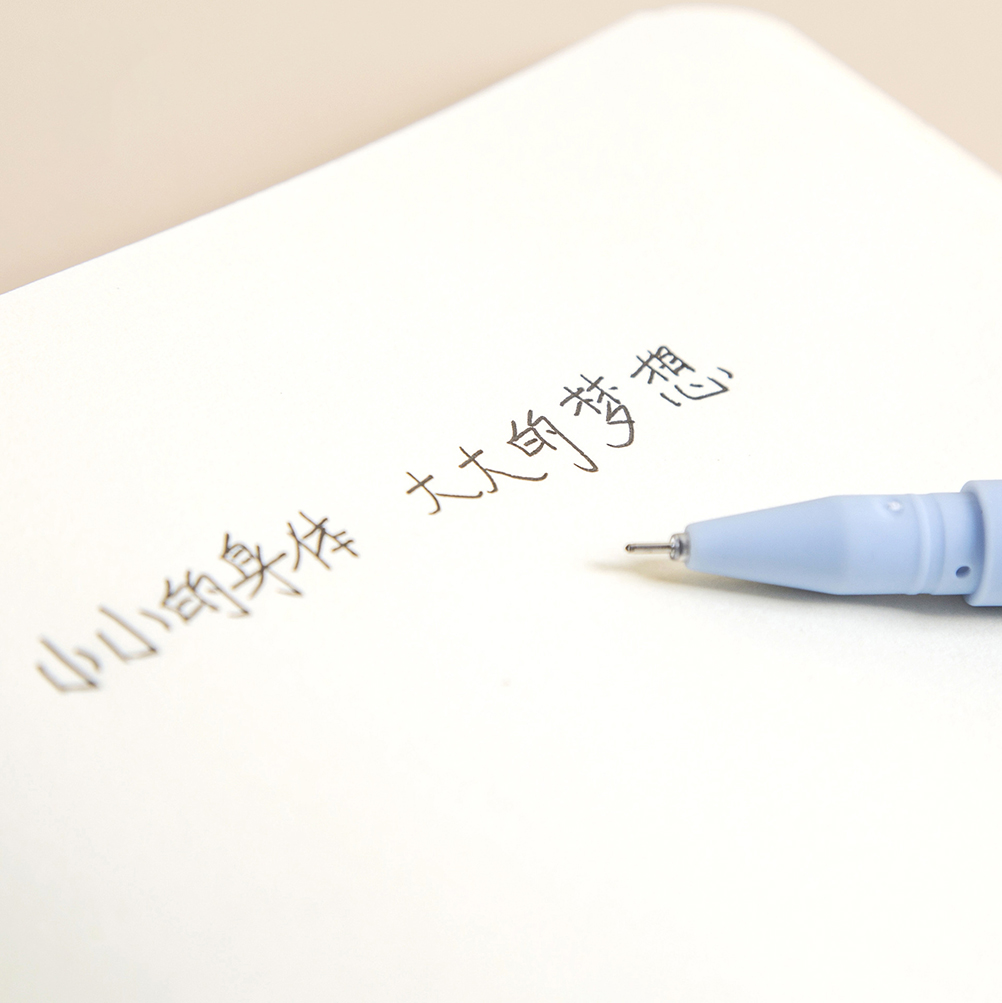 小小的身体 大大的梦想